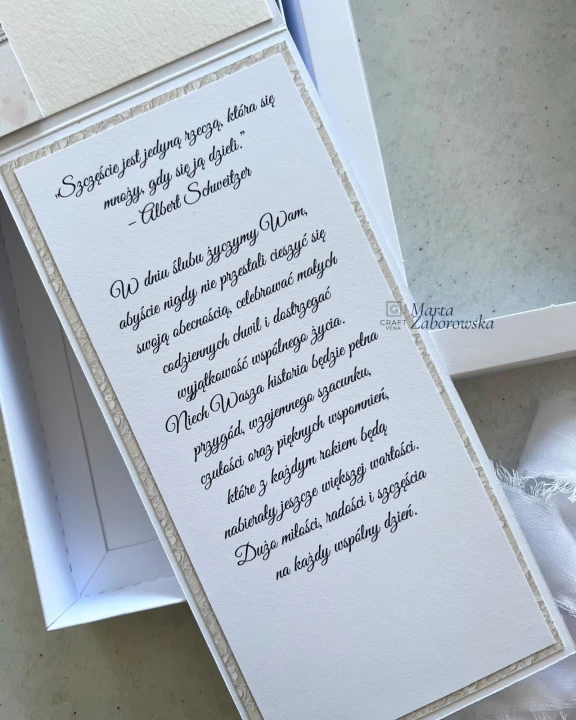 „Szczęście jest jedyną rzeczą, która się
mnoży, gdy się ją dzieli.”
– Albert Schweitzer
W dniu ślubu życzymy Wam,
abyście nigdy nie przestali cieszyć się
swoją obecnością, celebrować małych
codziennych chwil i dostrzegać
wyjątkowość wspólnego życia.
Niech Wasza historia będzie pełna
przygód, wzajemnego szacunku,
czułości oraz pięknych wspomnień,
które z każdym rokiem będą
nabierały jeszcze większej wartości.
Dużo miłości, radości i szczęścia
na każdy wspólny dzień.
CRAFT
VENA
Marta
Zaborowska